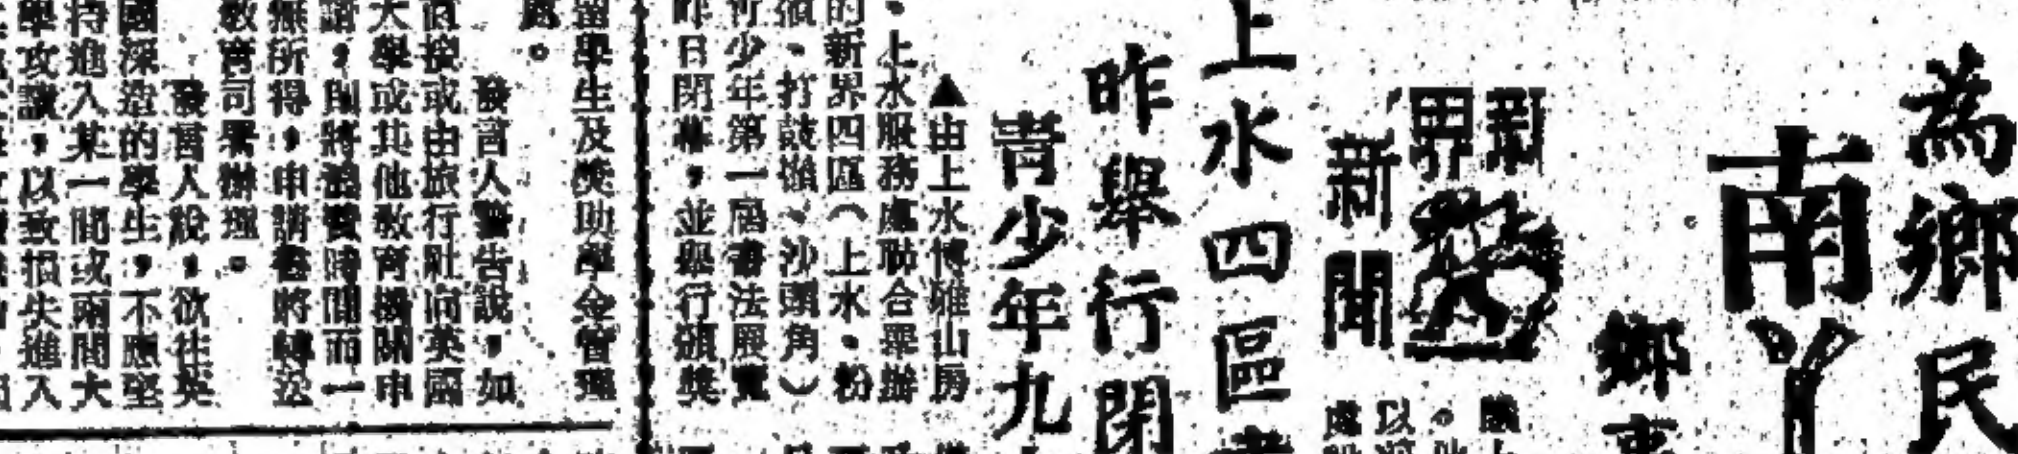 為鄉民
南丫
鄉事
新界
新聞
上水四區書
昨舉行閉
青少年九
▲由上水博雅山房
、上水服務處聯合舉辦
的新界四區（上水、粉
嶺、打鼓嶺、沙頭角）
青少年第一屆書法展覽
昨日閉幕，並舉行頒獎
留學生及獎助學金管理
處。
發言人警告說，如
直接或由旅行社向英國
大學或其他教育機關申
請，則將浪費時間而一
無所得，申請書將轉送
教育司署辦理。
發言人說，欲往英
國深造的學生，不應堅
持進入某一間或兩間大
學攻讀，以致損失進入